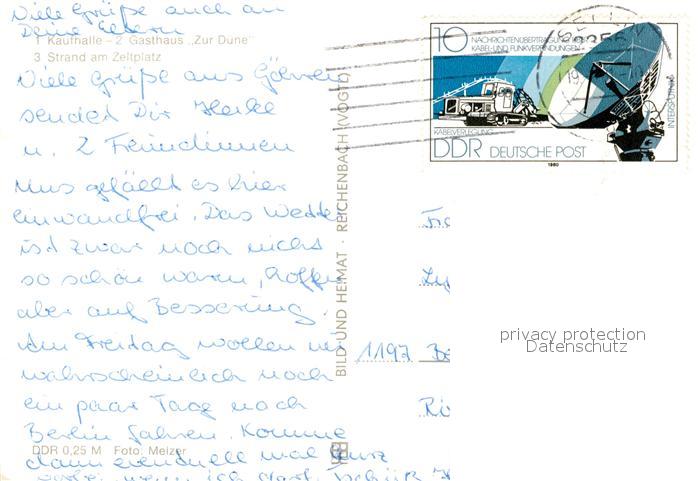 Viele Grüße auch an
Deine Eltern
1 Kaufhalle – 2 Gasthaus „Zur Düne"
3 Strand am Zeltplatz
Viele Grüße aus Göhren
sendet Dir Heike
u. 2 Freundinnen
Uns gefällt es hier
einwandfrei. Das Wetter
ist zwar noch nicht
so schön warm, hoffe
aber auf Besserung.
Am Freitag wollen wir
wahrscheinlich noch
ein paar Tage nach
Berlin fahren. Komme
dann eventuell mal kurz
DDR 0,25 M Foto: Melzer
BILD UND HEIMAT · REICHENBACH (VOGTL)
10 NACHRICHTENÜBERTRAGUNG
KABEL- UND FUNKVERBINDUNGEN
INTERSPUTNIK
KABELVERLEGUNG
DDR DEUTSCHE POST
1980
1197 Be
privacy protection
Datenschutz